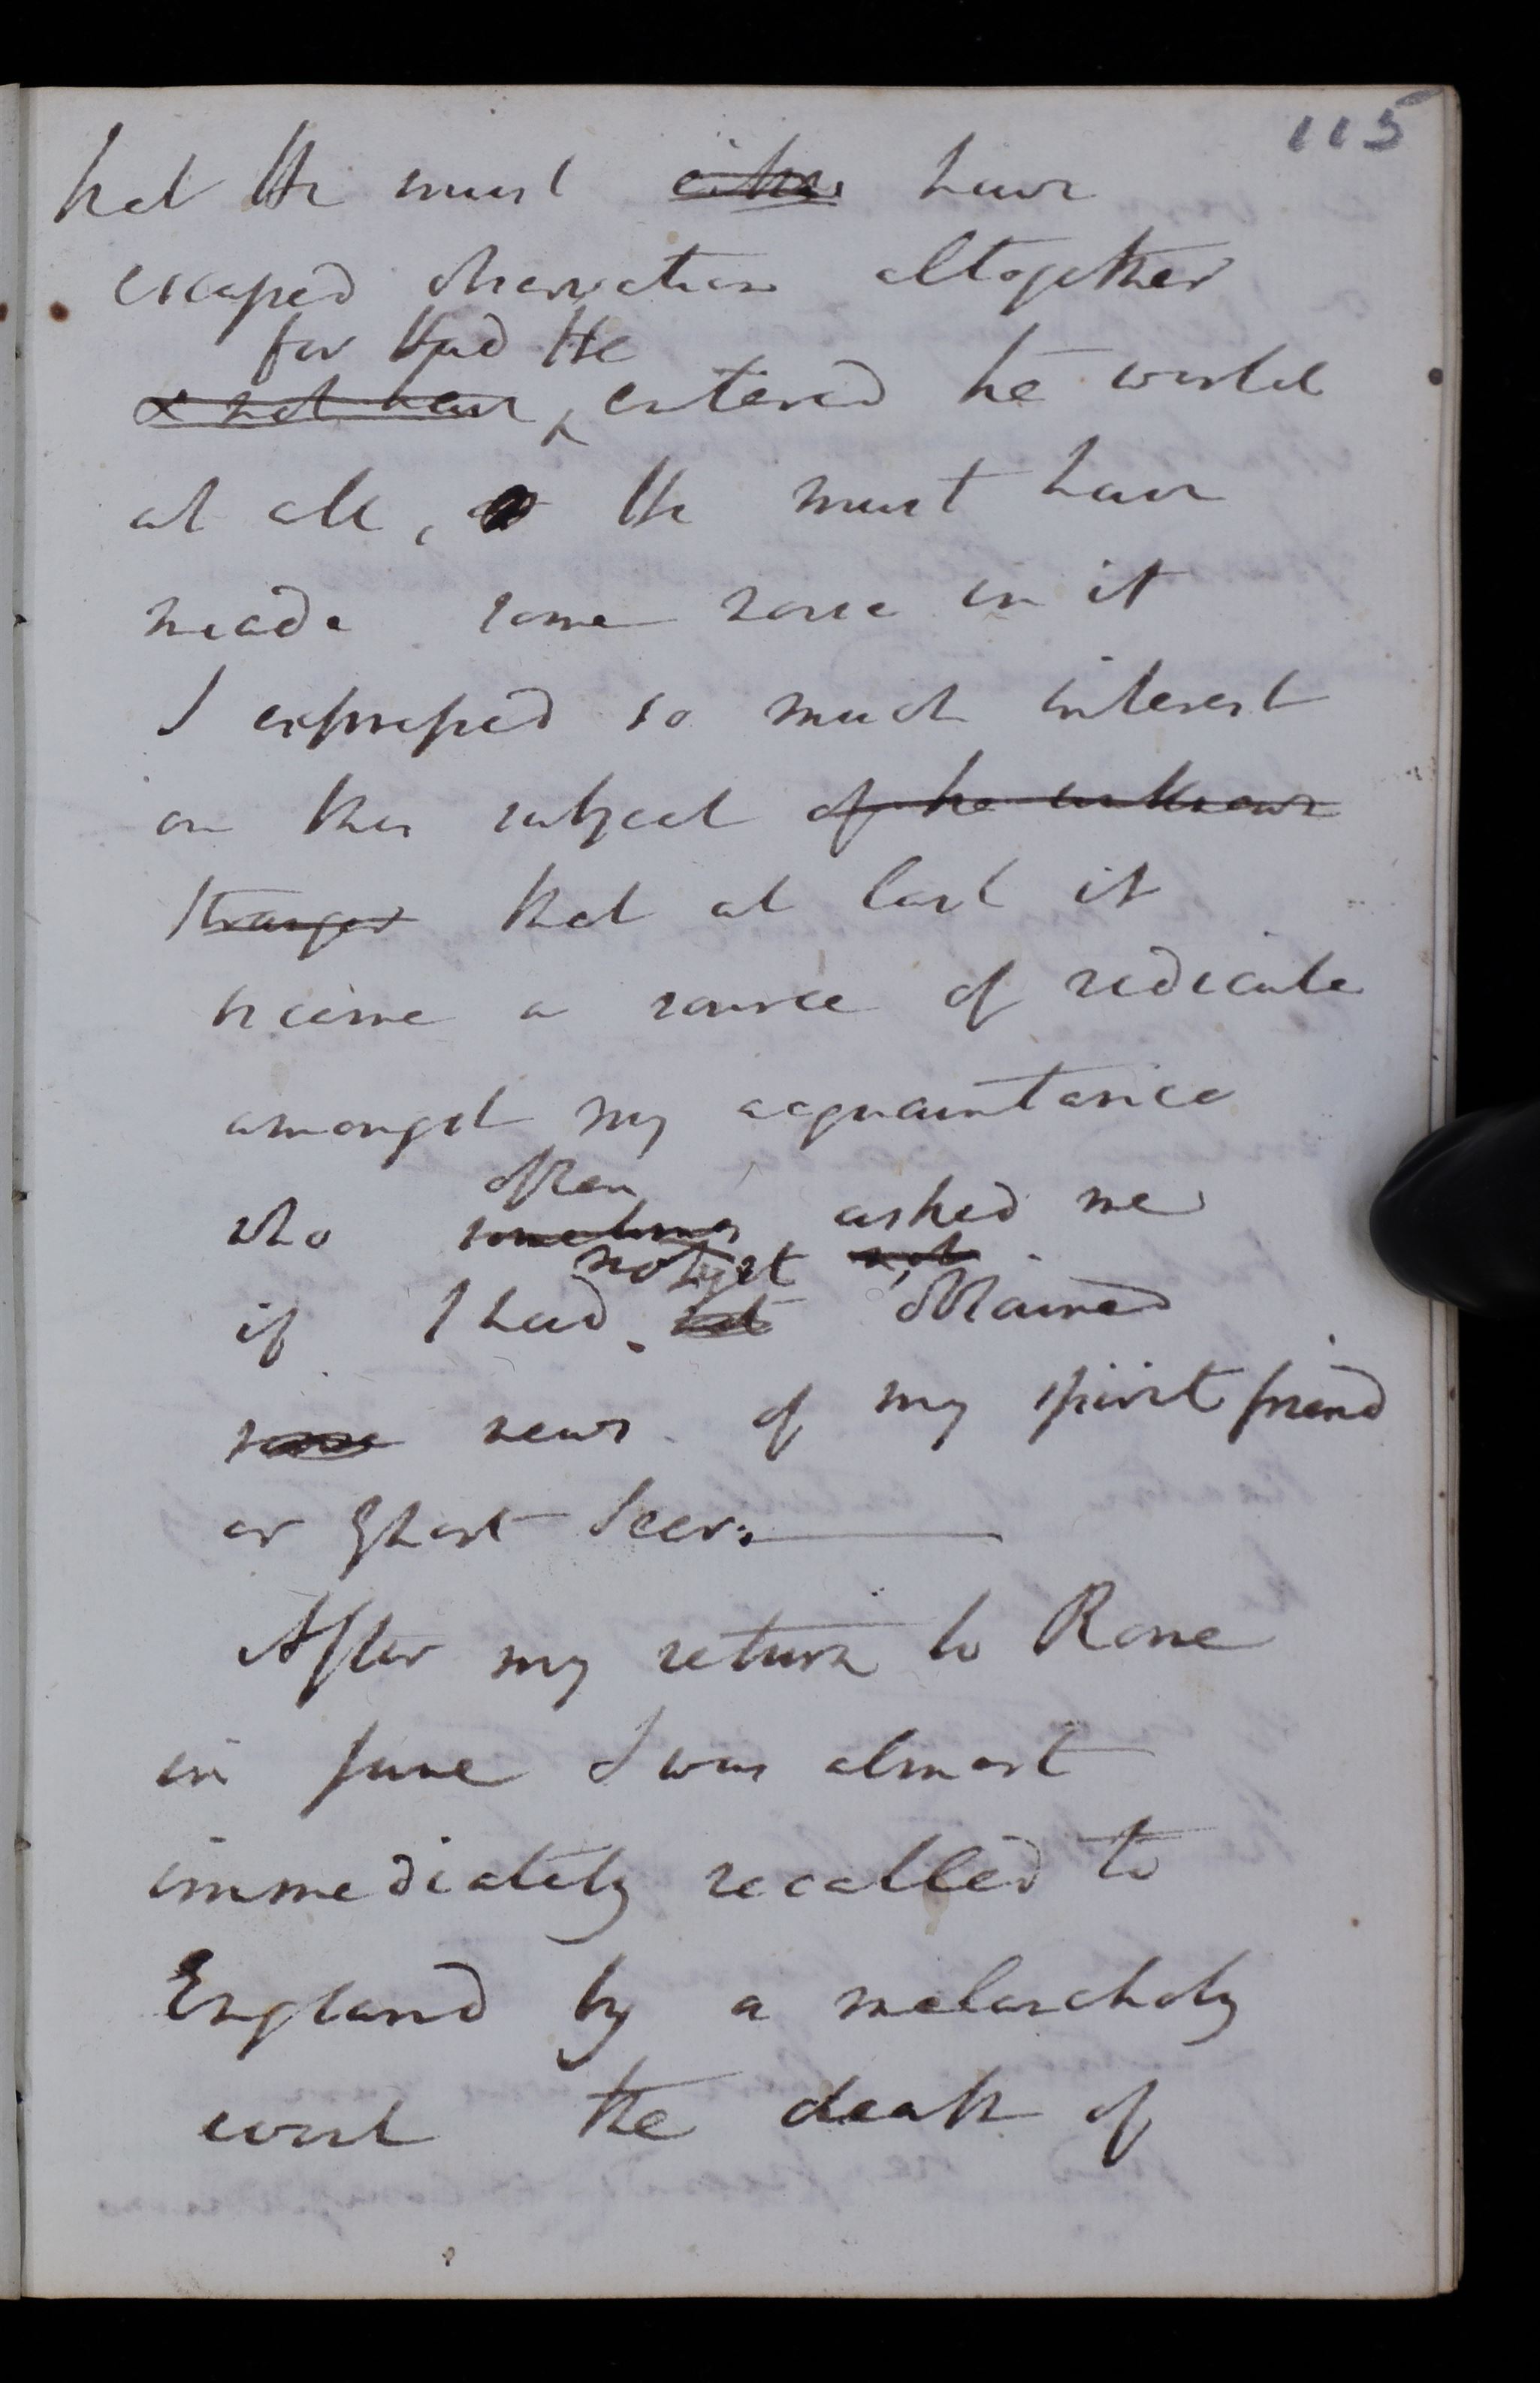 115
that He must either have
escaped observation altogether
for Had He
& not have entered the world
at all, He must have
made some noise in it
I expressed so much interest
on this subject of the unknown
stranger that at last it
became a source of redicule
amongst my acquaintance
often
who sometimes asked me
not yet not
if I had not obtained
some news of my spirit friend
or Ghost Seer.
After my return to Rome
in June I was almost
immediately recalled to
England by a melancholy
event the death of